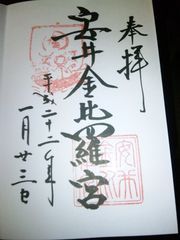 奉拝
安井金比羅宮
平成二十二年
一月廿三日